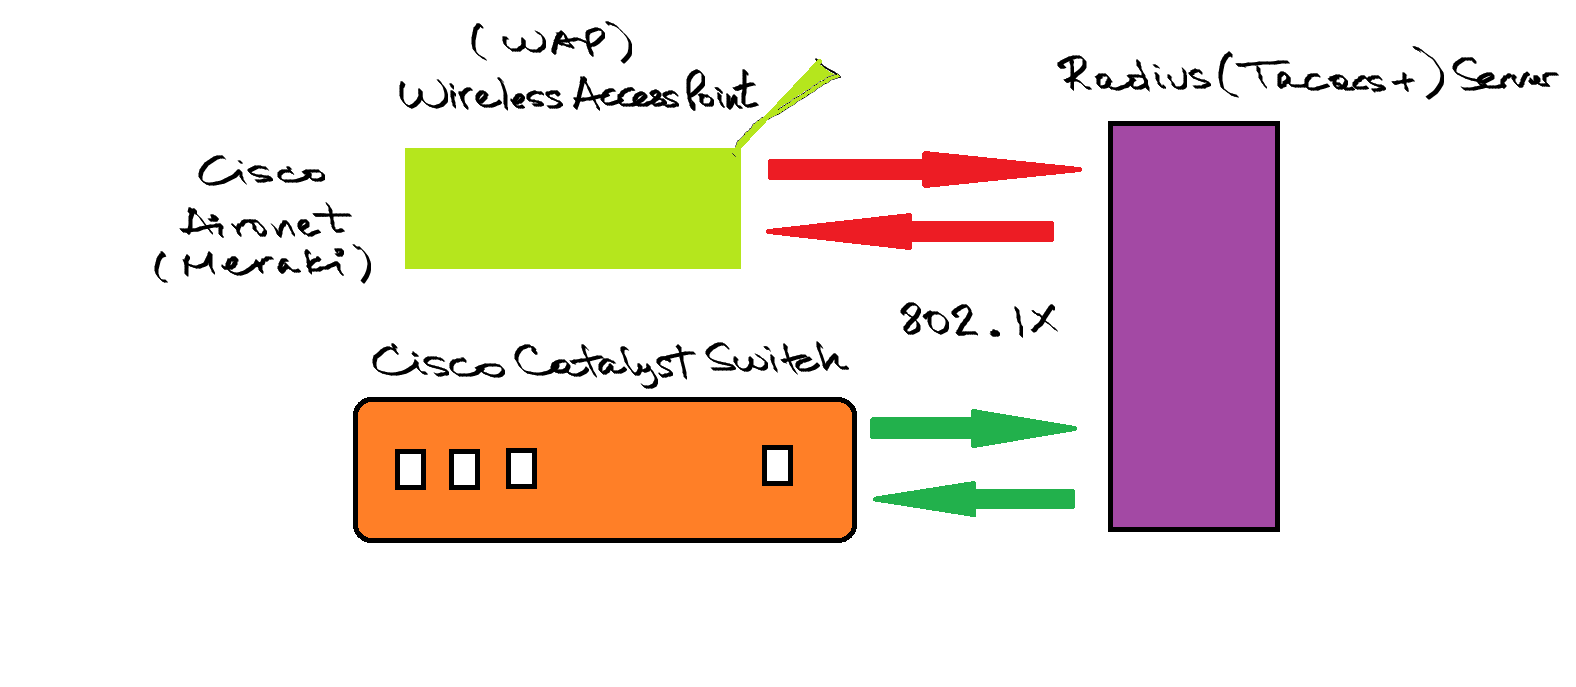 (WAP)
Wireless Access Point
Radius (Tacacs+) Server
Cisco
Aironet
(Meraki)
802.1X
Cisco Catalyst Switch